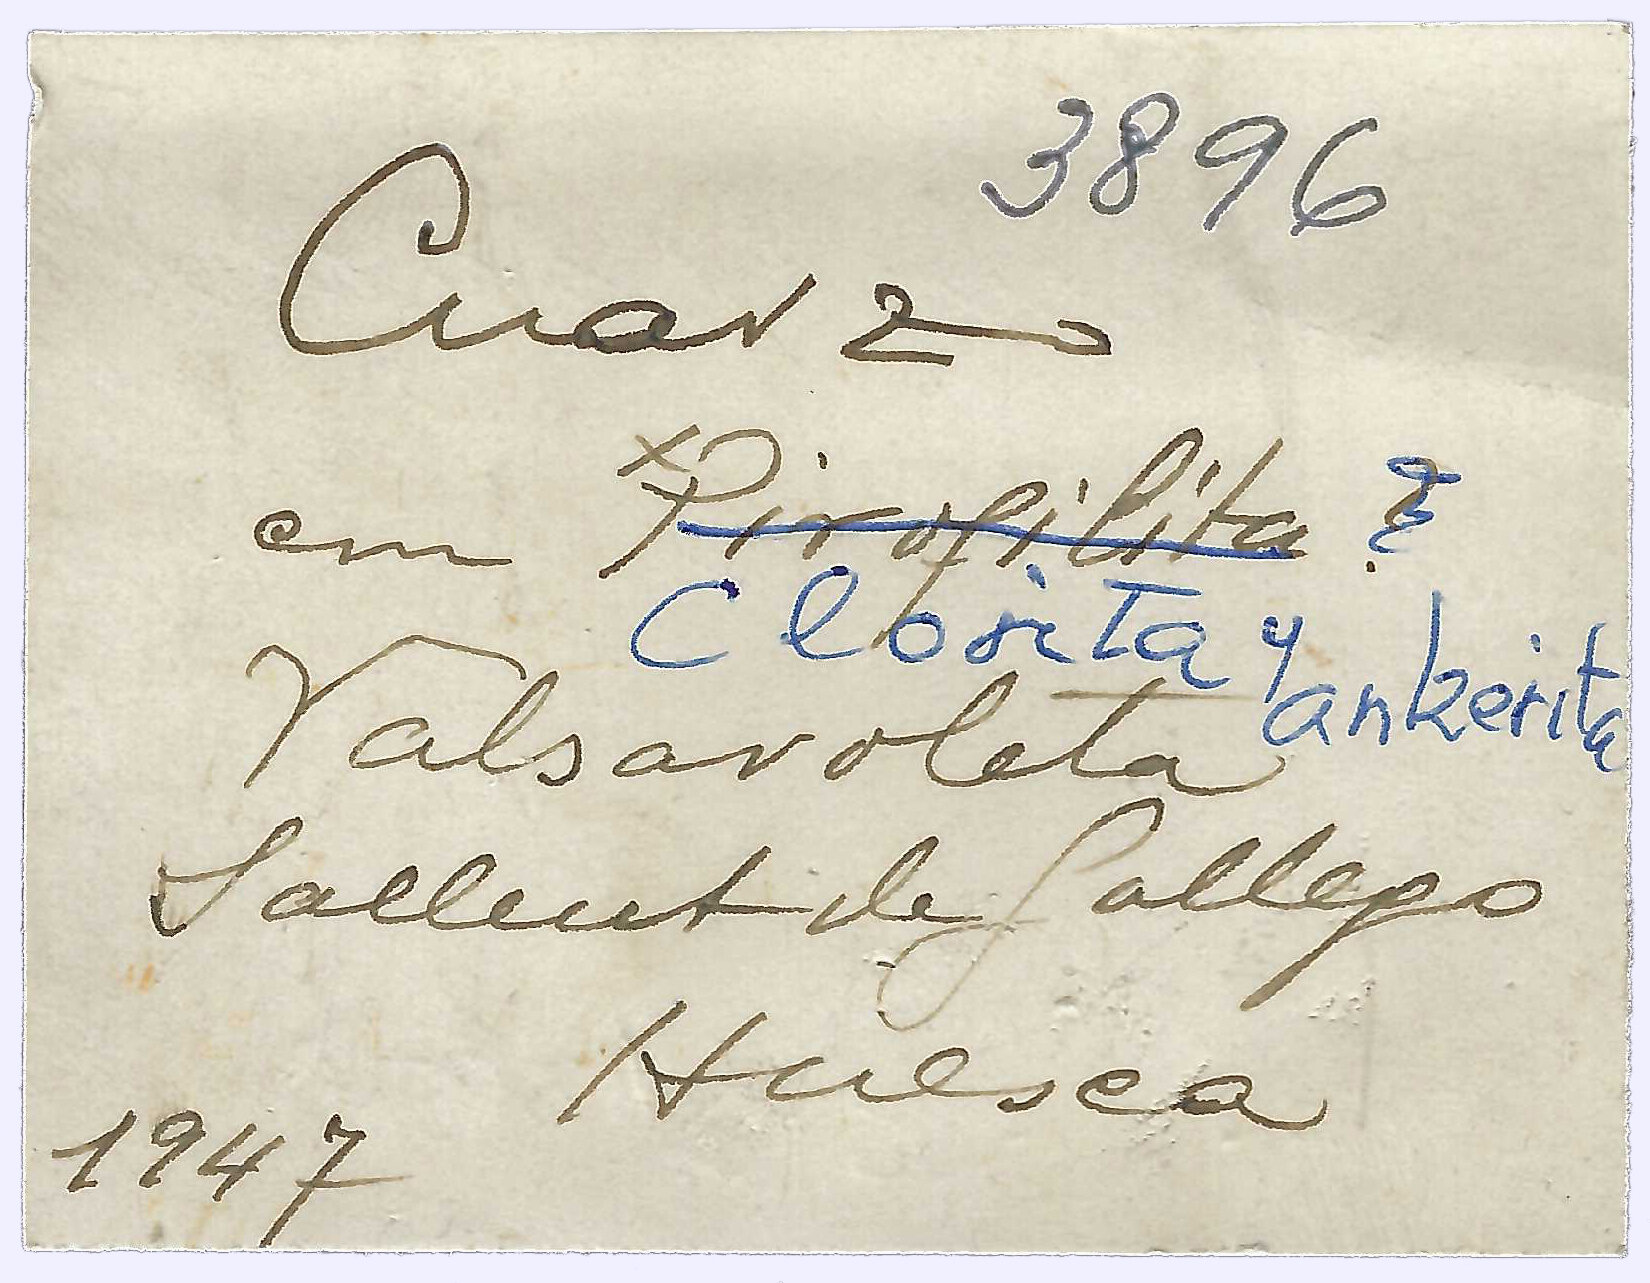 3896
Cuarzo
em x Pirofilita ?
Clorita y
ankerita
Valsaroleta
Sallent de Gallego
Huesca
1947